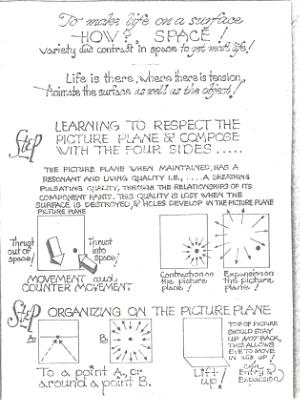 To make life on a surface
HOW?, SPACE!
variety and contrast in space to get most life!
Life is there, where there is tension,
Animate the surface as well as the object!
Step LEARNING TO RESPECT THE
PICTURE PLANE & COMPOSE
WITH THE FOUR SIDES.....
THE PICTURE PLANE WHEN MAINTAINED, HAS A
RESONANT AND LIVING QUALITY I.E., .... A BREATHING
PULSATING QUALITY, THROUGH THE RELATIONSHIPS OF ITS
COMPONENT PARTS. THIS QUALITY IS LOST WHEN THE
SURFACE IS DESTROYED, & HOLES DEVELOP IN THE PICTURE PLANE
PICTURE PLANE
Thrust
out of
space!
Thrust
into
space!
MOVEMENT and
COUNTER MOVEMENT
Contraction on
the picture
plane!
Expansion on
the picture
plane!
Step ORGANIZING ON THE PICTURE PLANE
A.
B.
To a point A., or
around a point B.
Lift
up!
TOP OF PICTURE
SHOULD STAY
UP NOT BACK,
THIS ALLOWS
EYE TO MOVE
IN and UP!
Entry &
Expansion